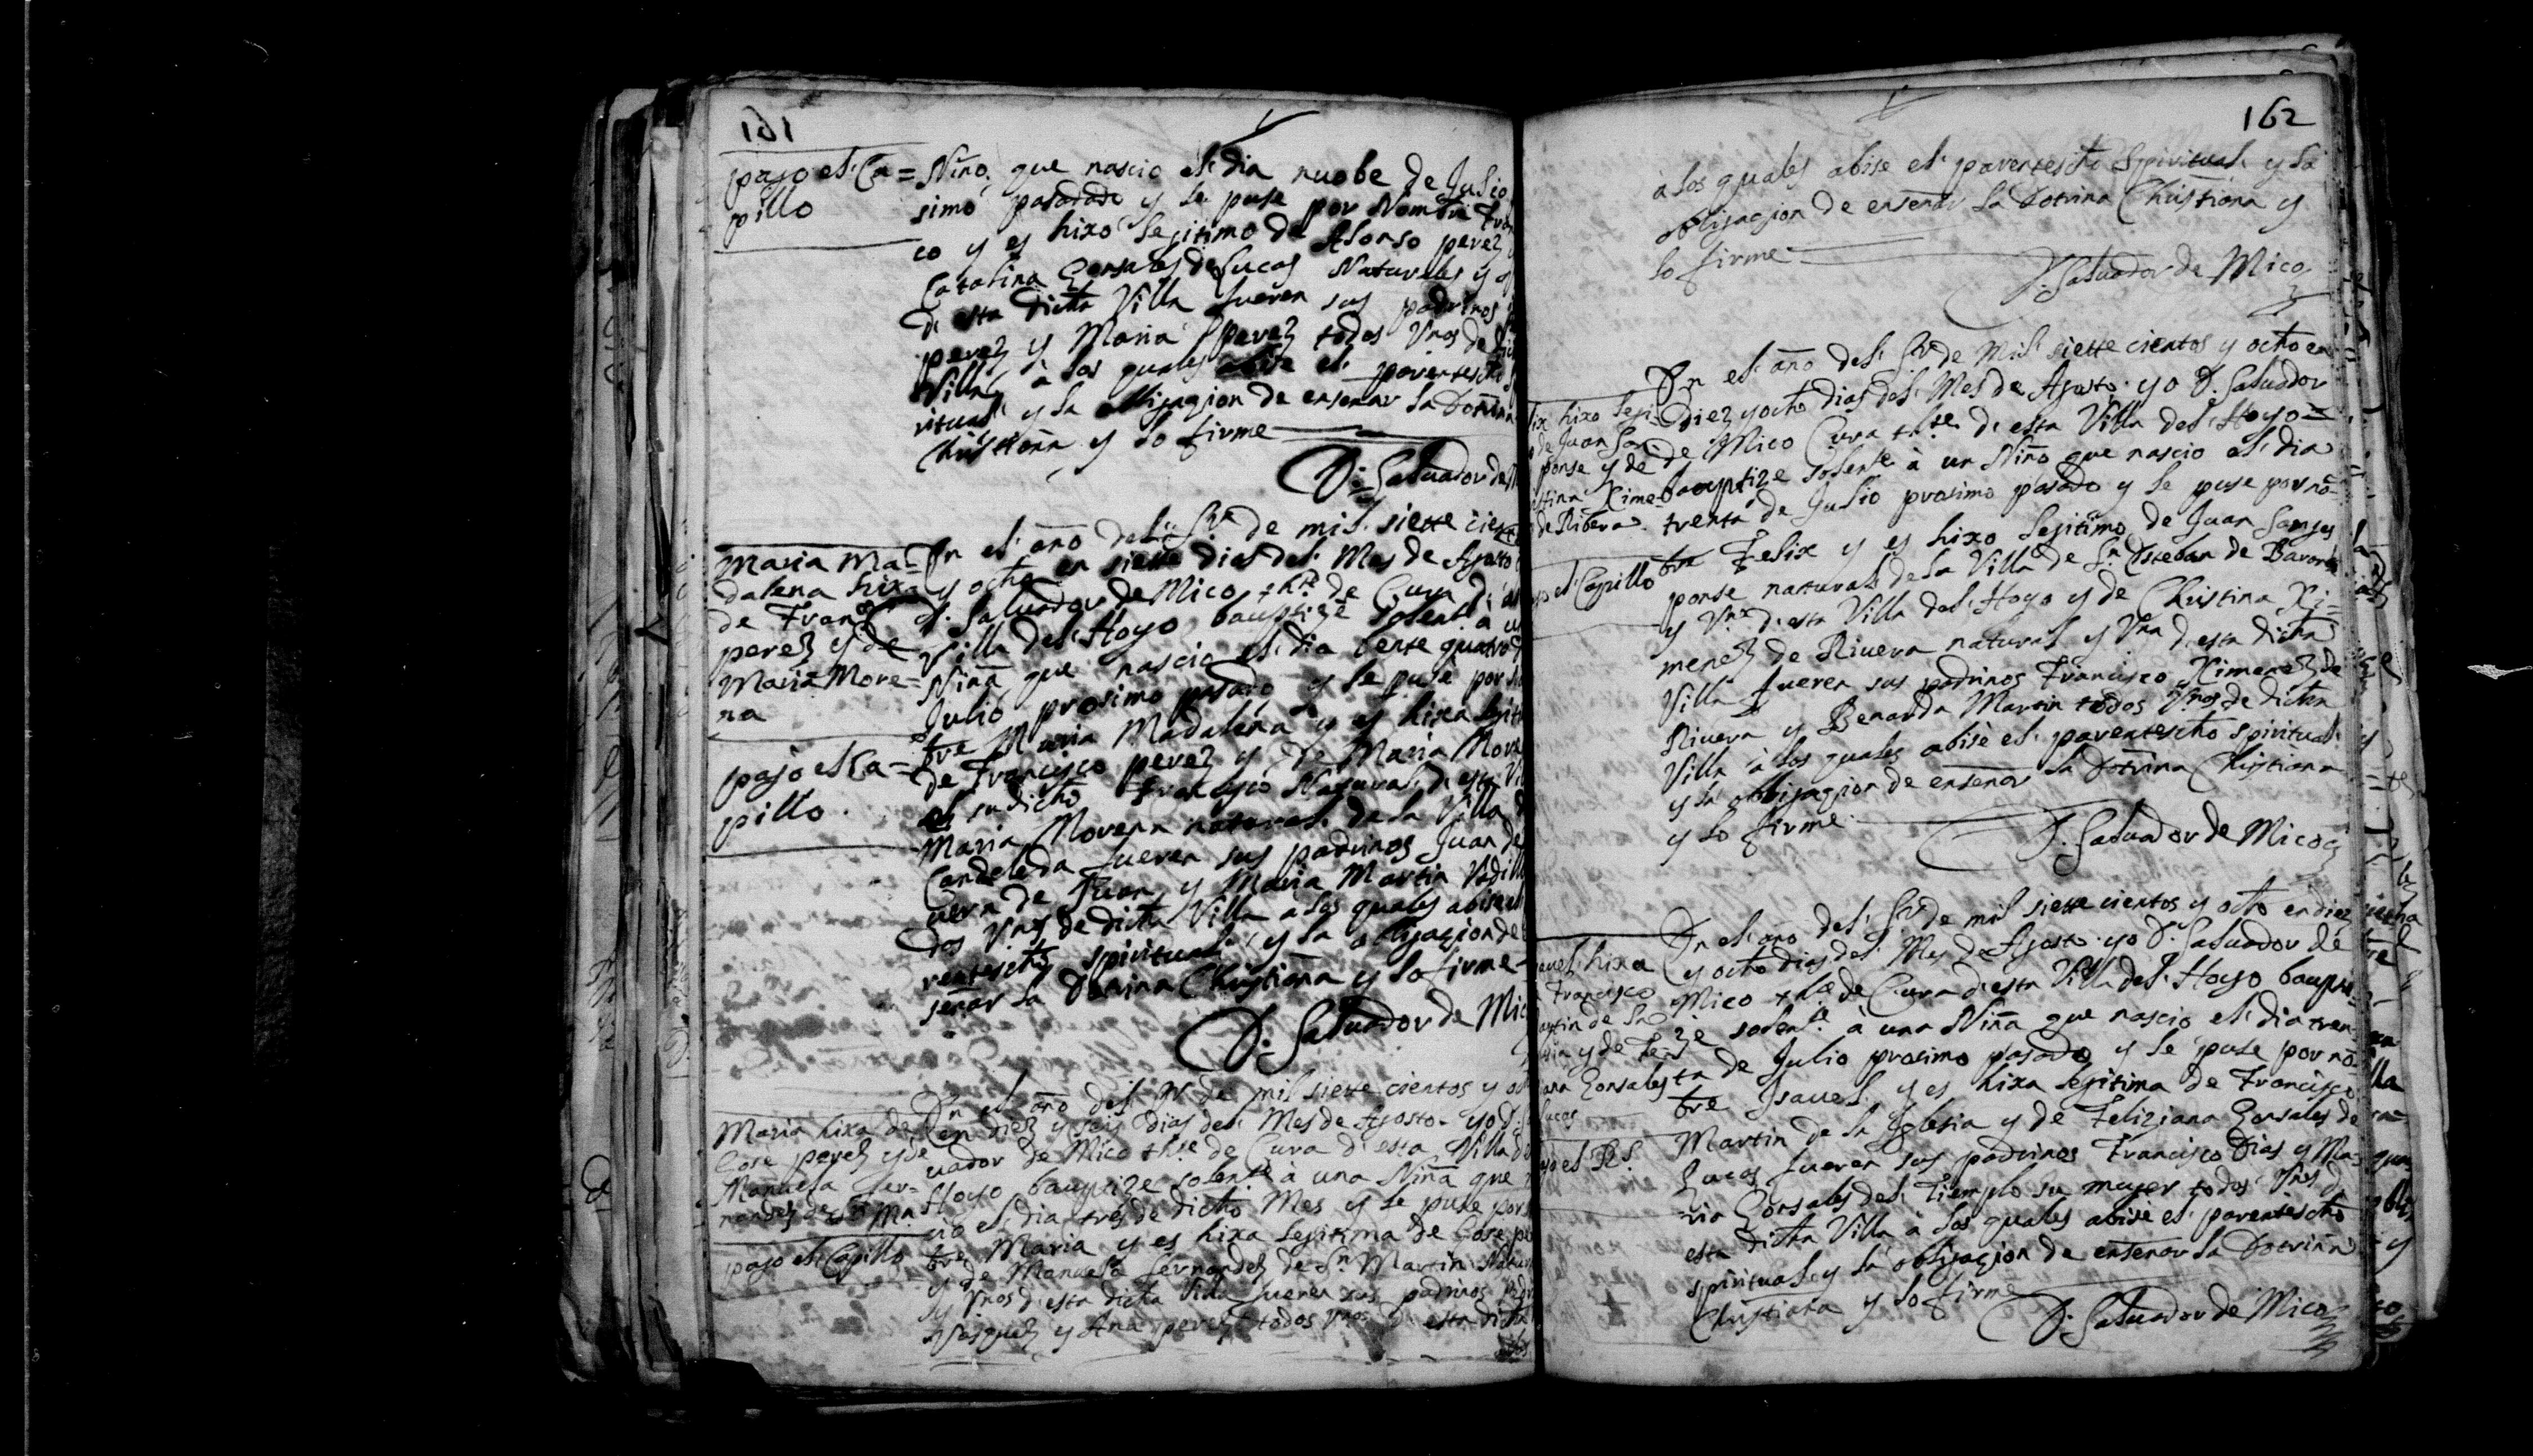 161
pajo el Ca=
pillo
Niño que nascio el dia nuebe de Julio
simo pasadado y le puse por Nombre Fran
co y es hixo legitimo de Alonso perez
Catalina Gonsales de Lucas Naturales y
de esta dicha Villa fueren sus padrinos
perez y Maria perez todos Vnos de dic
Villa à los quales abise el parentescho
ritual y la obligazion de enseñar la Dotrina
Christiana y lo firme
D. Saluador de M
Maria Ma=
dalena hixa
de Franco
perez y de
Maria More=
na
pajo el Ca=
pillo
En el año del Sr. de mil siette cient
y ocho en siette dias del Mes de Agosto
D. Saluador de Mico thte de Cura d'es
Villa del Hoyo bauptize solente a u
Niña que nascio el dia bente quatro d
Julio prosimo pasado y le puse por no
bre Maria Madalena y es hixa legit
de Francysco perez y de Maria More
el su dicho Francysco Natural d'esta Vi
Maria Morena natural de la Villa d
Candeleda fueren sus padrinos Juan de
uera de Juan y Maria Martin Vadill
dos Vnos de dicha Villa a los quales abise el
rentescho spiritual y la obligazion de
señar la Dotrina Christiana y lo firme
D. Saluador de Mic
Maria hixa de
Cose perez y de
Manuela Fer=
nandez de Sn Mn
pajo el Capillo
En el año del Sr de mil siette cientos y oc
en diez y seis dias del Mes de Agosto yo D.
uador de Mico thte de Cura d'esta Villa d
Hoyo bauptize solente à una Niña que
cio el dia tres de dicho Mes y le puse por
bre Maria y es hixa legitima de Cose pe
y de Manuela fernandez de Sn Martin Natur
y Vnos d'esta dicha Villa fueren sus padrinos
y Ana perez todos Vnos d'esta dicha
162
à los quales abise el parentescho Spiritual y la
obligazion de enseñar la Dotrina Christiana y
lo firme
D. Saluador de Mico
lix hixo legi=
de Juan San
ponse y de
stina Xime=
de Ribera
el Capillo
En el año del Sr de Mil siette cientos y ocho en
Diez y ocho dias del Mes de Agosto yo D. Saluador
de Mico Cura thte d'esta Villa del Hoyo=
bauptize solente à un Niño que nascio el dia
trenta de Julio prosimo pasado y le puse por nō=
bre Felix y es hixo legitimo de Juan Sanjes
ponse natural de la Villa de Sn Esteban de Bavo
y Vno d'esta Villa del Hoyo y de Christina Xi=
menez de Riuera natural y Vna d'esta dicha
Villa fueren sus padrinos Francisco Ximenez de
Riuera y Benarda Martin todos Vnos de dicha
Villa à los quales abise el parentescho spiritual
y la obligazion de enseñar la Dotrina Christiana
y lo firme
D. Saluador de Mico
auel hixa
Francisco
artin de la
sia y de Fe=
ana Gonsales
Lucas
En el año del Sr de mil siette cientos y ocho en diez
y ocho dias del Mes de Agosto yo D. Saluador de
Mico thte de Cura d'esta Villa del Hoyo baupti=
ze solente à una Niña que nascio el dia tren
ta de Julio prosimo pasado y le puse por nō
bre Isauel y es hixa legitima de Francisco
Martin de la Yglesia y de Feliziana Gonsales de
Lucas fueren sus padrinos Francisco Dias y Ma=
ria Gonsales del Tiemplo su mujer todos Vnos d
esta dicha Villa à los quales abise el parentescho
spiritual y la obligazion de enseñar la Dotrina
Christiana y lo firme
D. Saluador de Mico